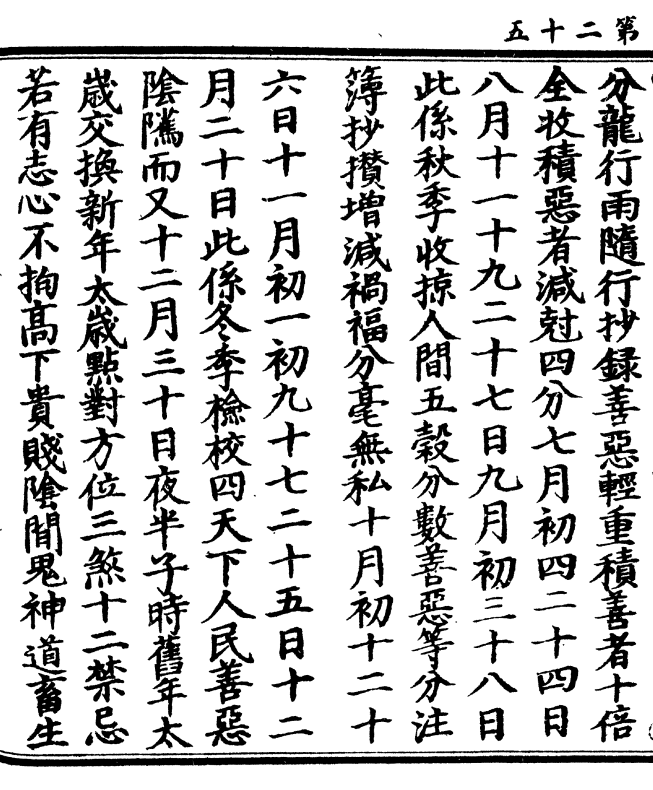 第二十五
分龍行雨隨行抄録善惡輕重積善者十倍
全收積惡者減尅四分七月初四二十四日
八月十一十九二十七日九月初三十八日
此係秋季收掠人間五穀分數善惡等分注
簿抄攅增減禍福分毫無私十月初十二十
六日十一月初一初九十七二十五日十二
月二十日此係冬季檢校四天下人民善惡
隂隲而又十二月三十日夜半子時舊年太
歲交換新年太歲點對方位三煞十二禁忌
若有志心不拘髙下貴賤隂間鬼神道畜生